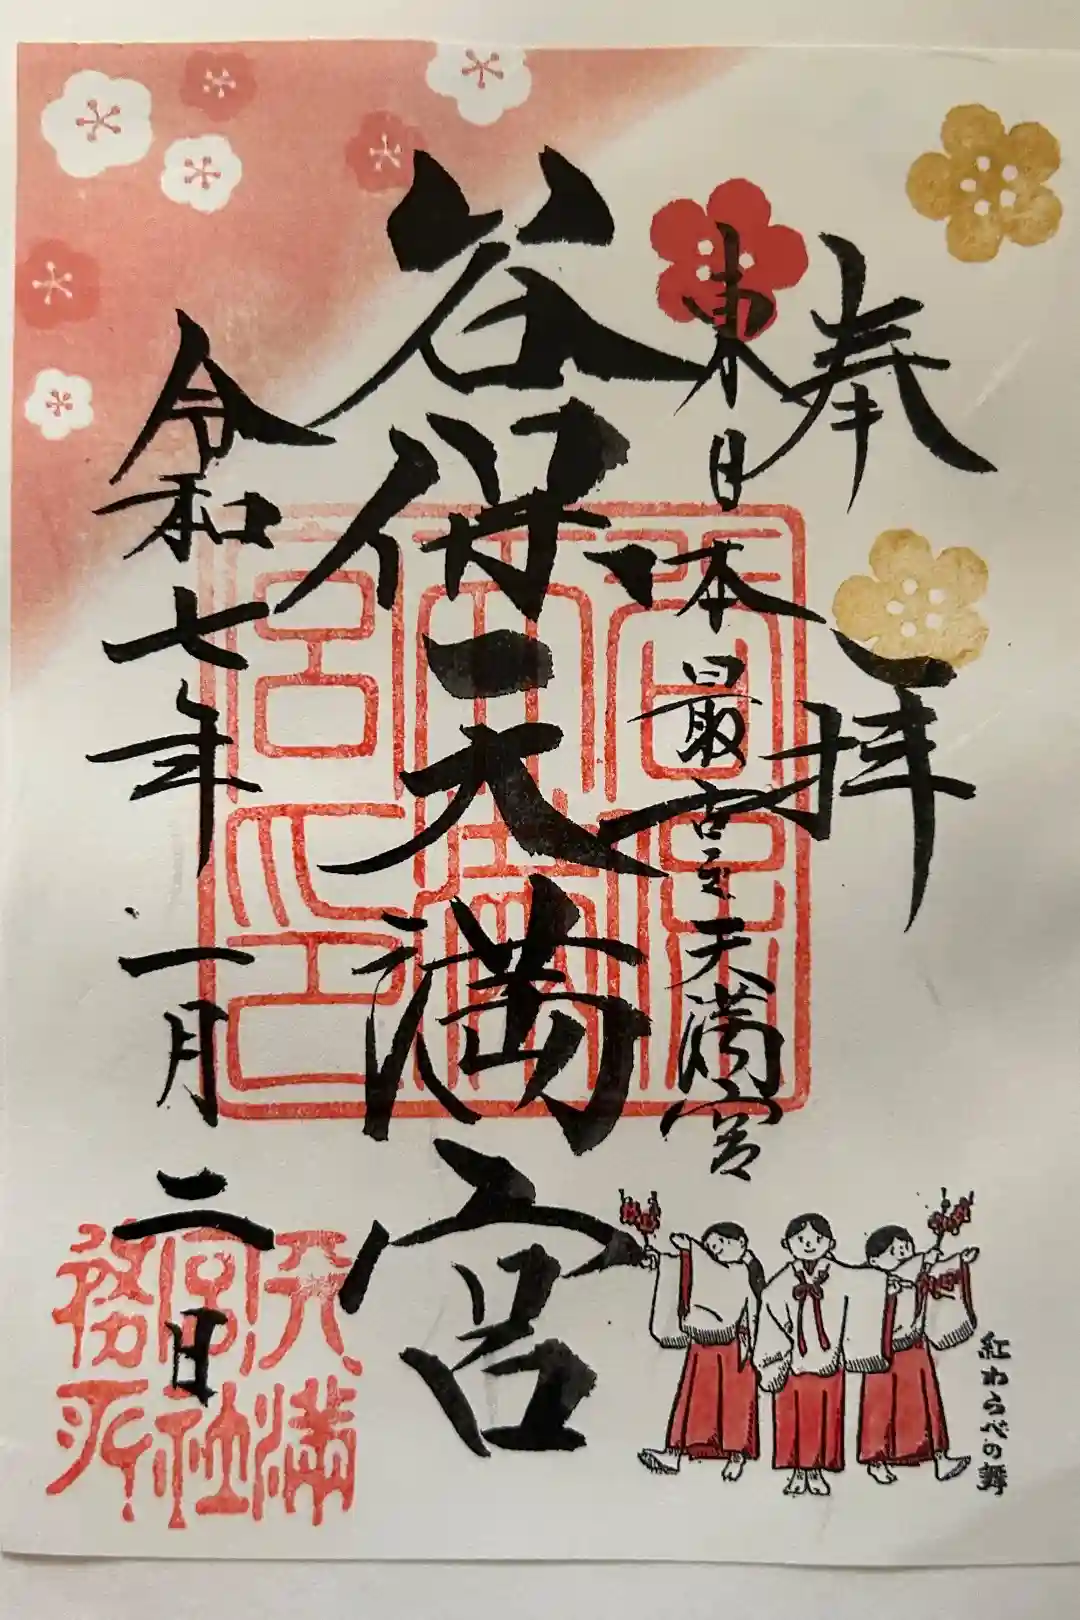 奉拝
東日本最古之天満宮
谷保天満宮
令和七年一月二日
天満
宮社
務所
紅わらべの舞